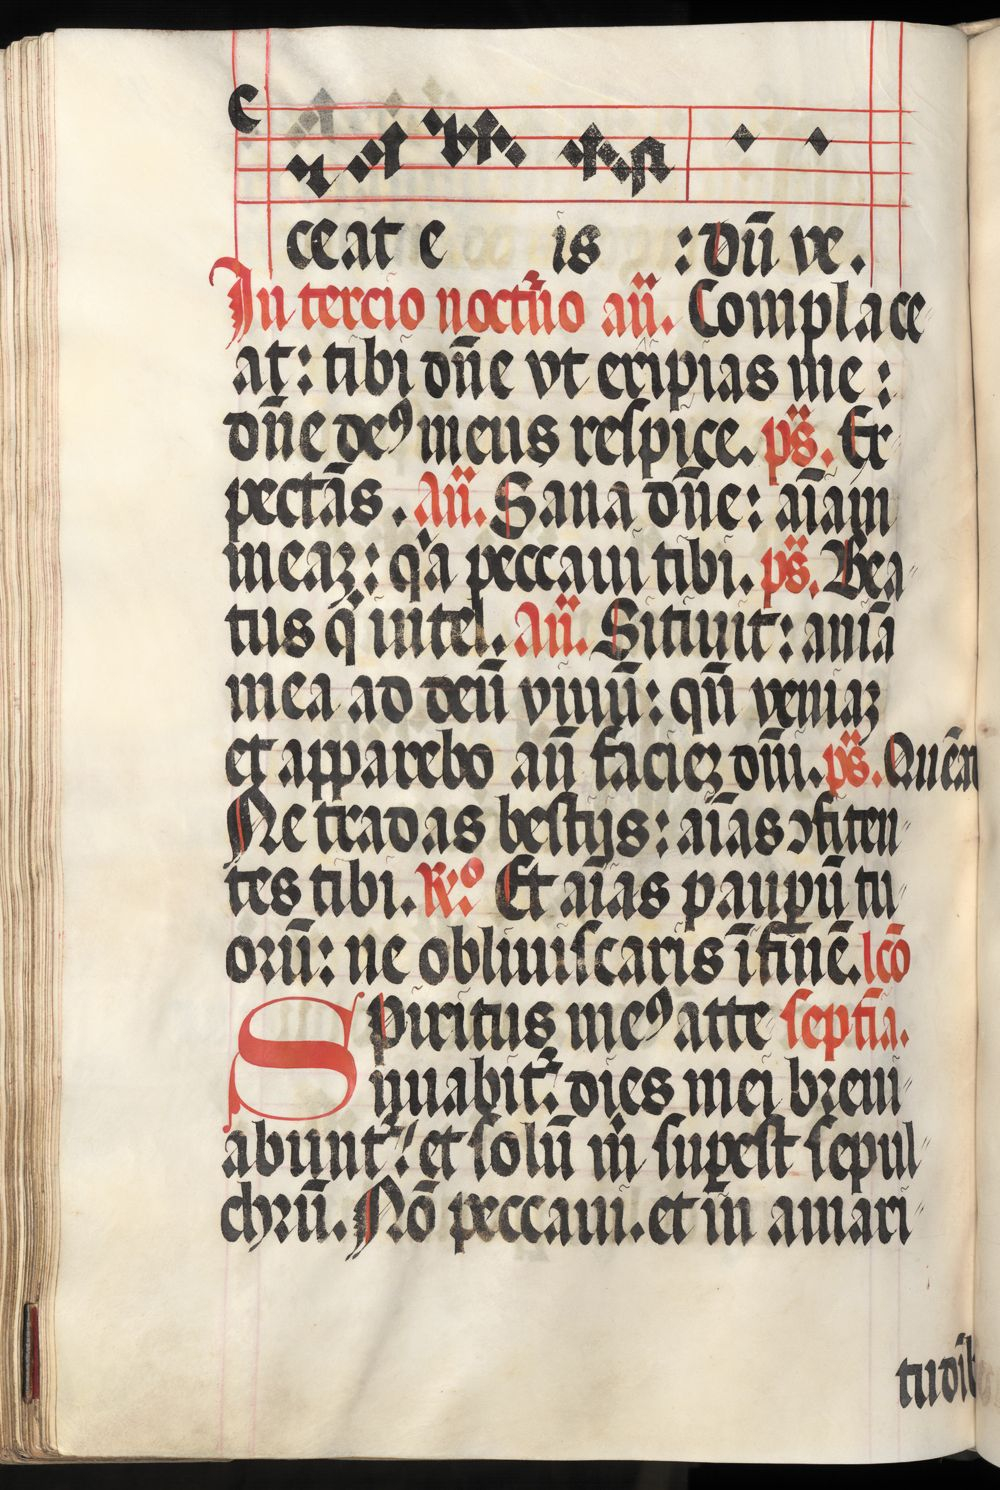 ceat e is : dūi ve.
In tercio noctūo aū. Complace
at: tibi dn̄e vt eripias me:
dn̄e deꝰ meus respice. ps̄. Ex
pectās. Aū. Sana dn̄e: aīam
meaꝫ: qa peccaui tibi. ps̄. Bea
tus q̄ intel. Aū. Sitiuit: aniā
mea ad deū viuū: qn̄ veniaꝫ
et apparebo an̄ facieꝫ dn̄i. ps̄. Quēm
Ne tradas bestijs: aīas ↄfiten
tes tibi. R̸o Et aīas paupū tu
orū: ne obliuiscaris īfinē. lcō
Spiritus meꝰ atte septīa.
nuabit: dies mei breui
abunt: et solū m̄ supest sepul
chrū. Nō peccaui. et in amari
tudīb